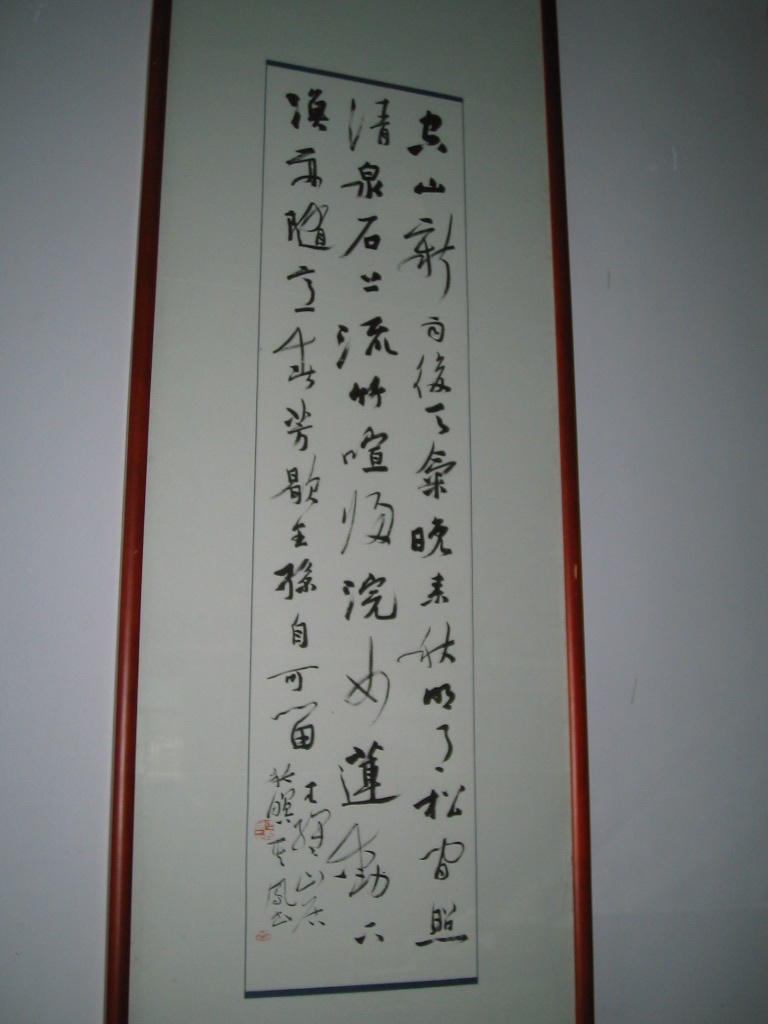 空山新雨後天氣晚來秋明月松間照
清泉石上流竹喧歸浣女蓮動下
漁舟隨意春芳歇王孫自可留
王維山居